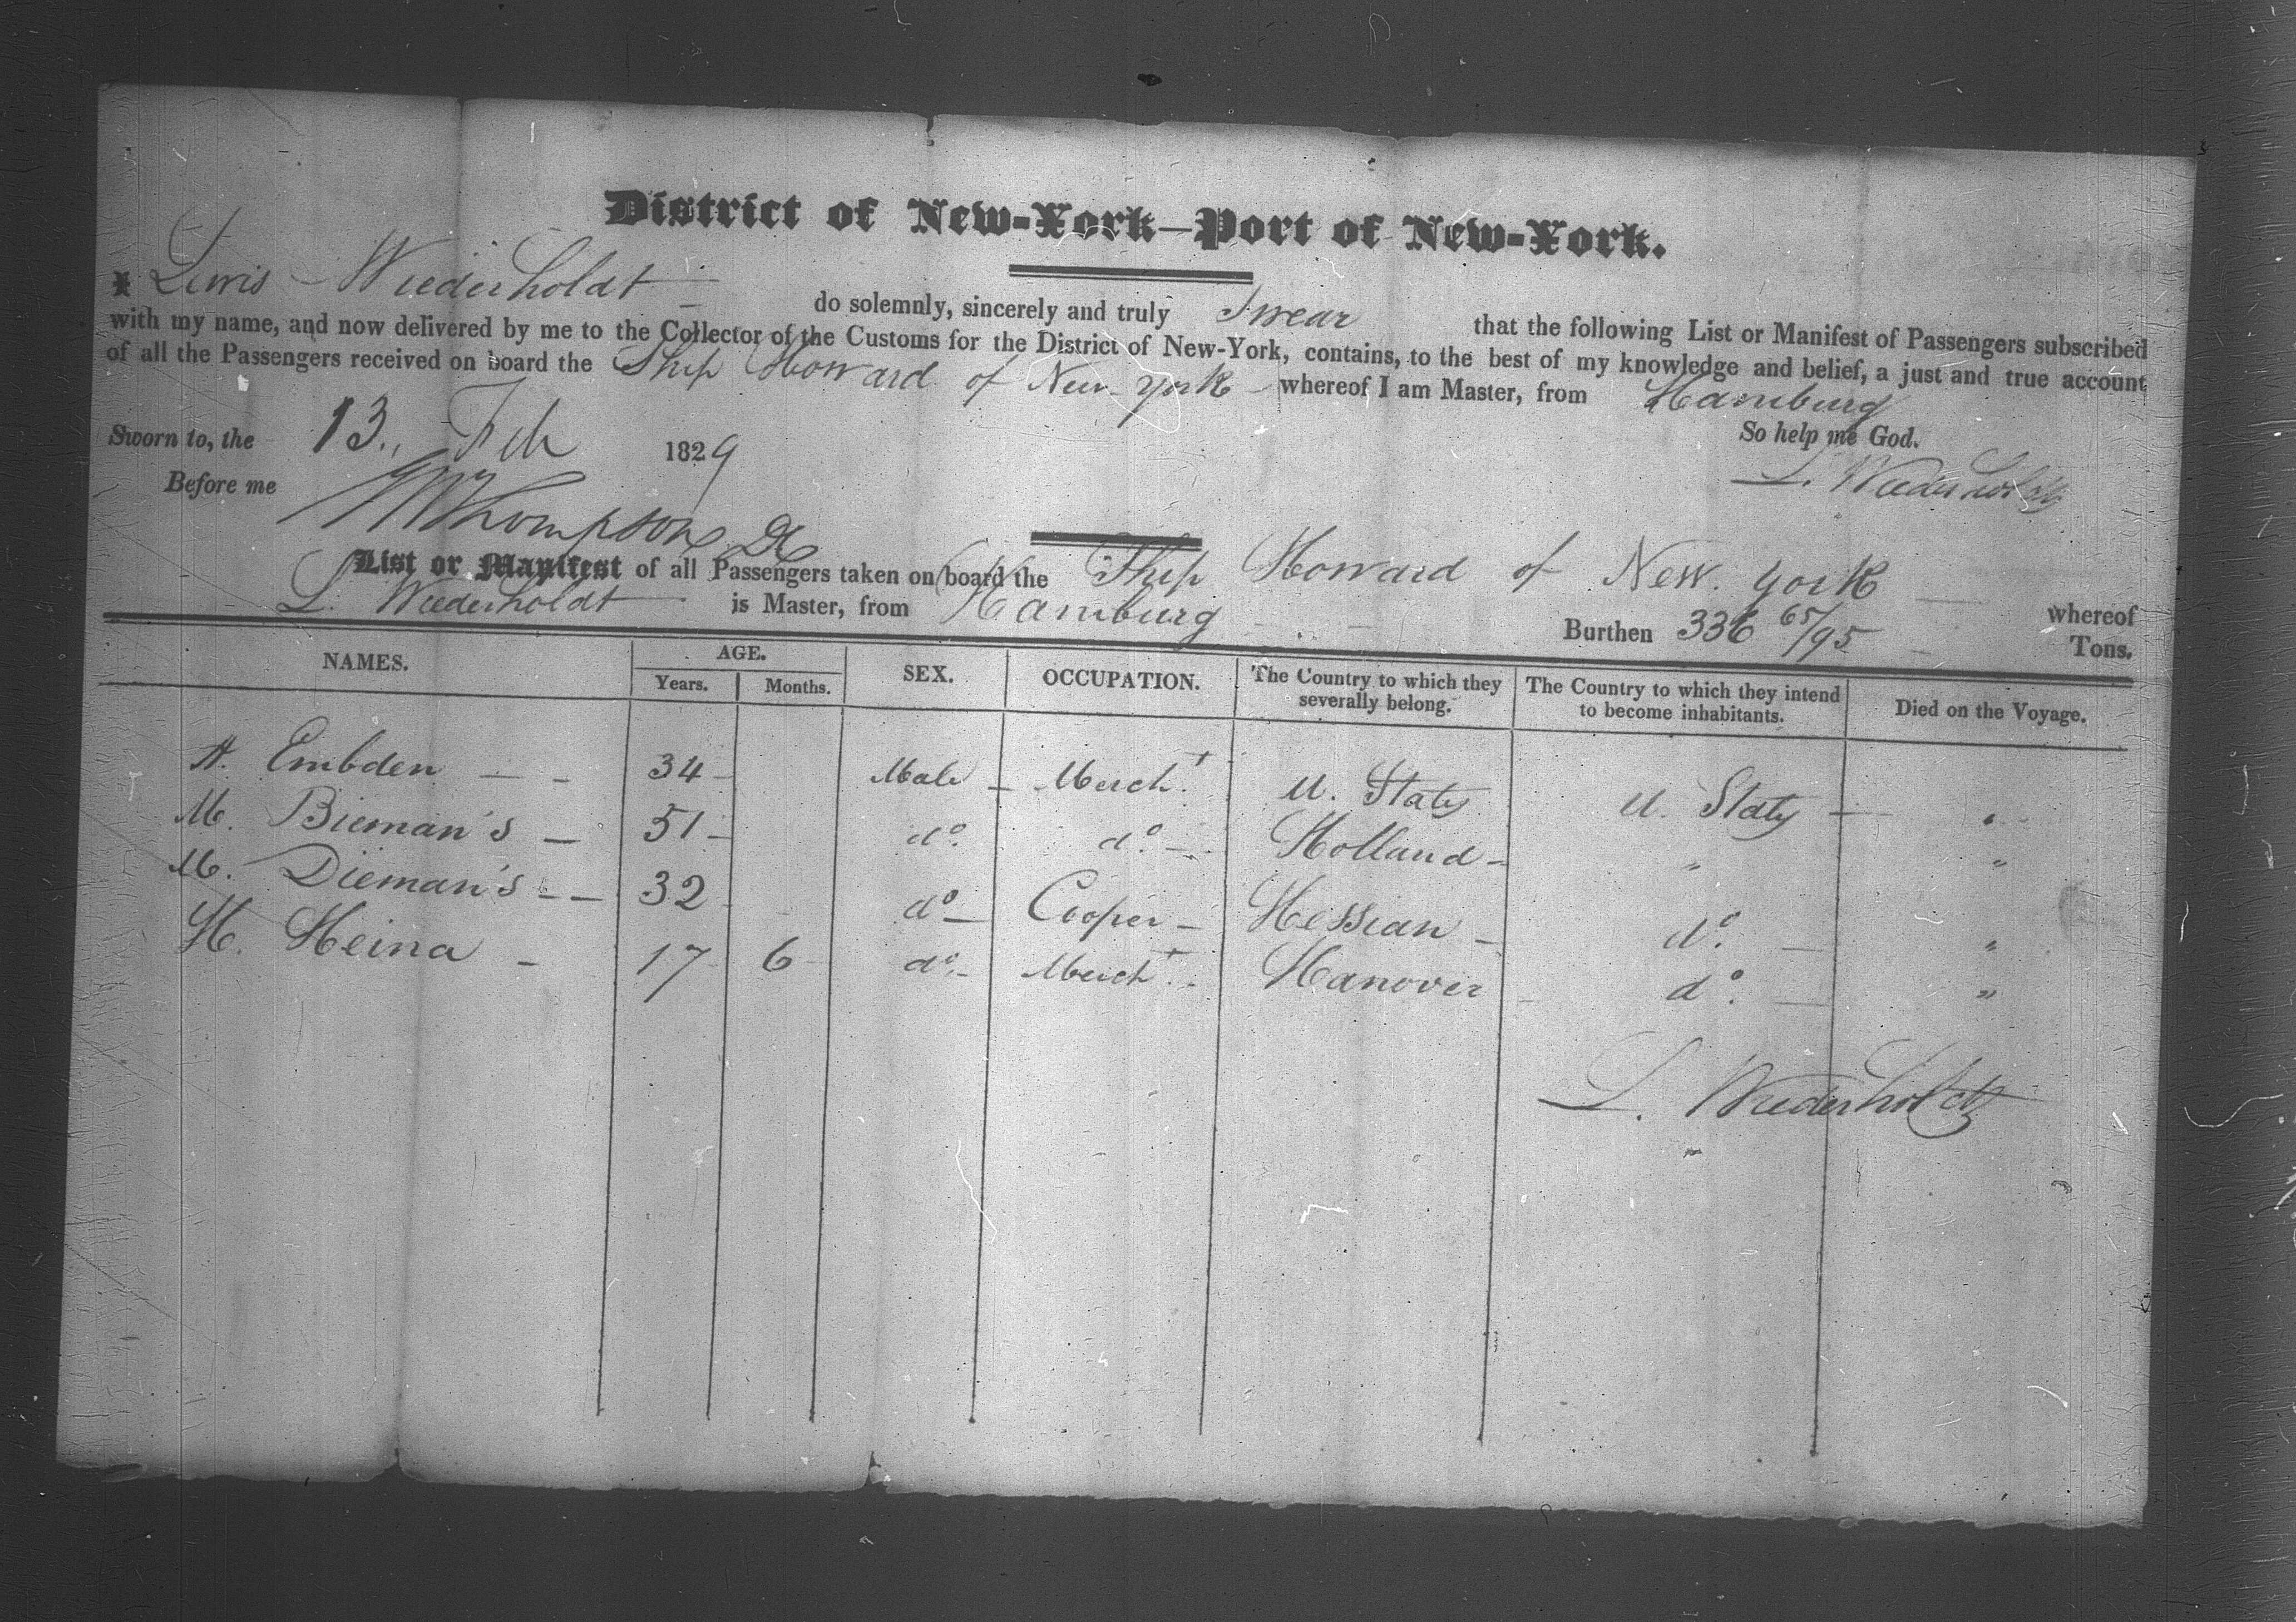 District of New-York—Port of New-York.
I Lewis Wiederholdt do solemnly, sincerely and truly Swear that the following List or Manifest of Passengers subscribed
with my name, and now delivered by me to the Collector of the Customs for the District of New-York, contains, to the best of my knowledge and belief, a just and true account
of all the Passengers received on board the Ship Howard of New York whereof I am Master, from Hamburg
So help me God.
Sworn to, the 13. Feb 1829
L. Wiederholdt
Before me Thompson
List or Manifest of all Passengers taken on board the Ship Howard of New York whereof
L. Wiederholdt is Master, from Hamburg Burthen 336 65/95 Tons.
NAMES. AGE. SEX. OCCUPATION. The Country to which they severally belong. The Country to which they intend to become inhabitants. Died on the Voyage.
Years. Months.
A. Embden — - 34 - Male - Mercht. U. States U. States — "
M. Bieman's — 51 - do. do. - Holland - " "
M. Dieman's - — 32 do - Cooper - Hessian - do. — "
H. Heina - 17 6 do. - Mercht. - Hanover - do. — "
L. Wiederholdt